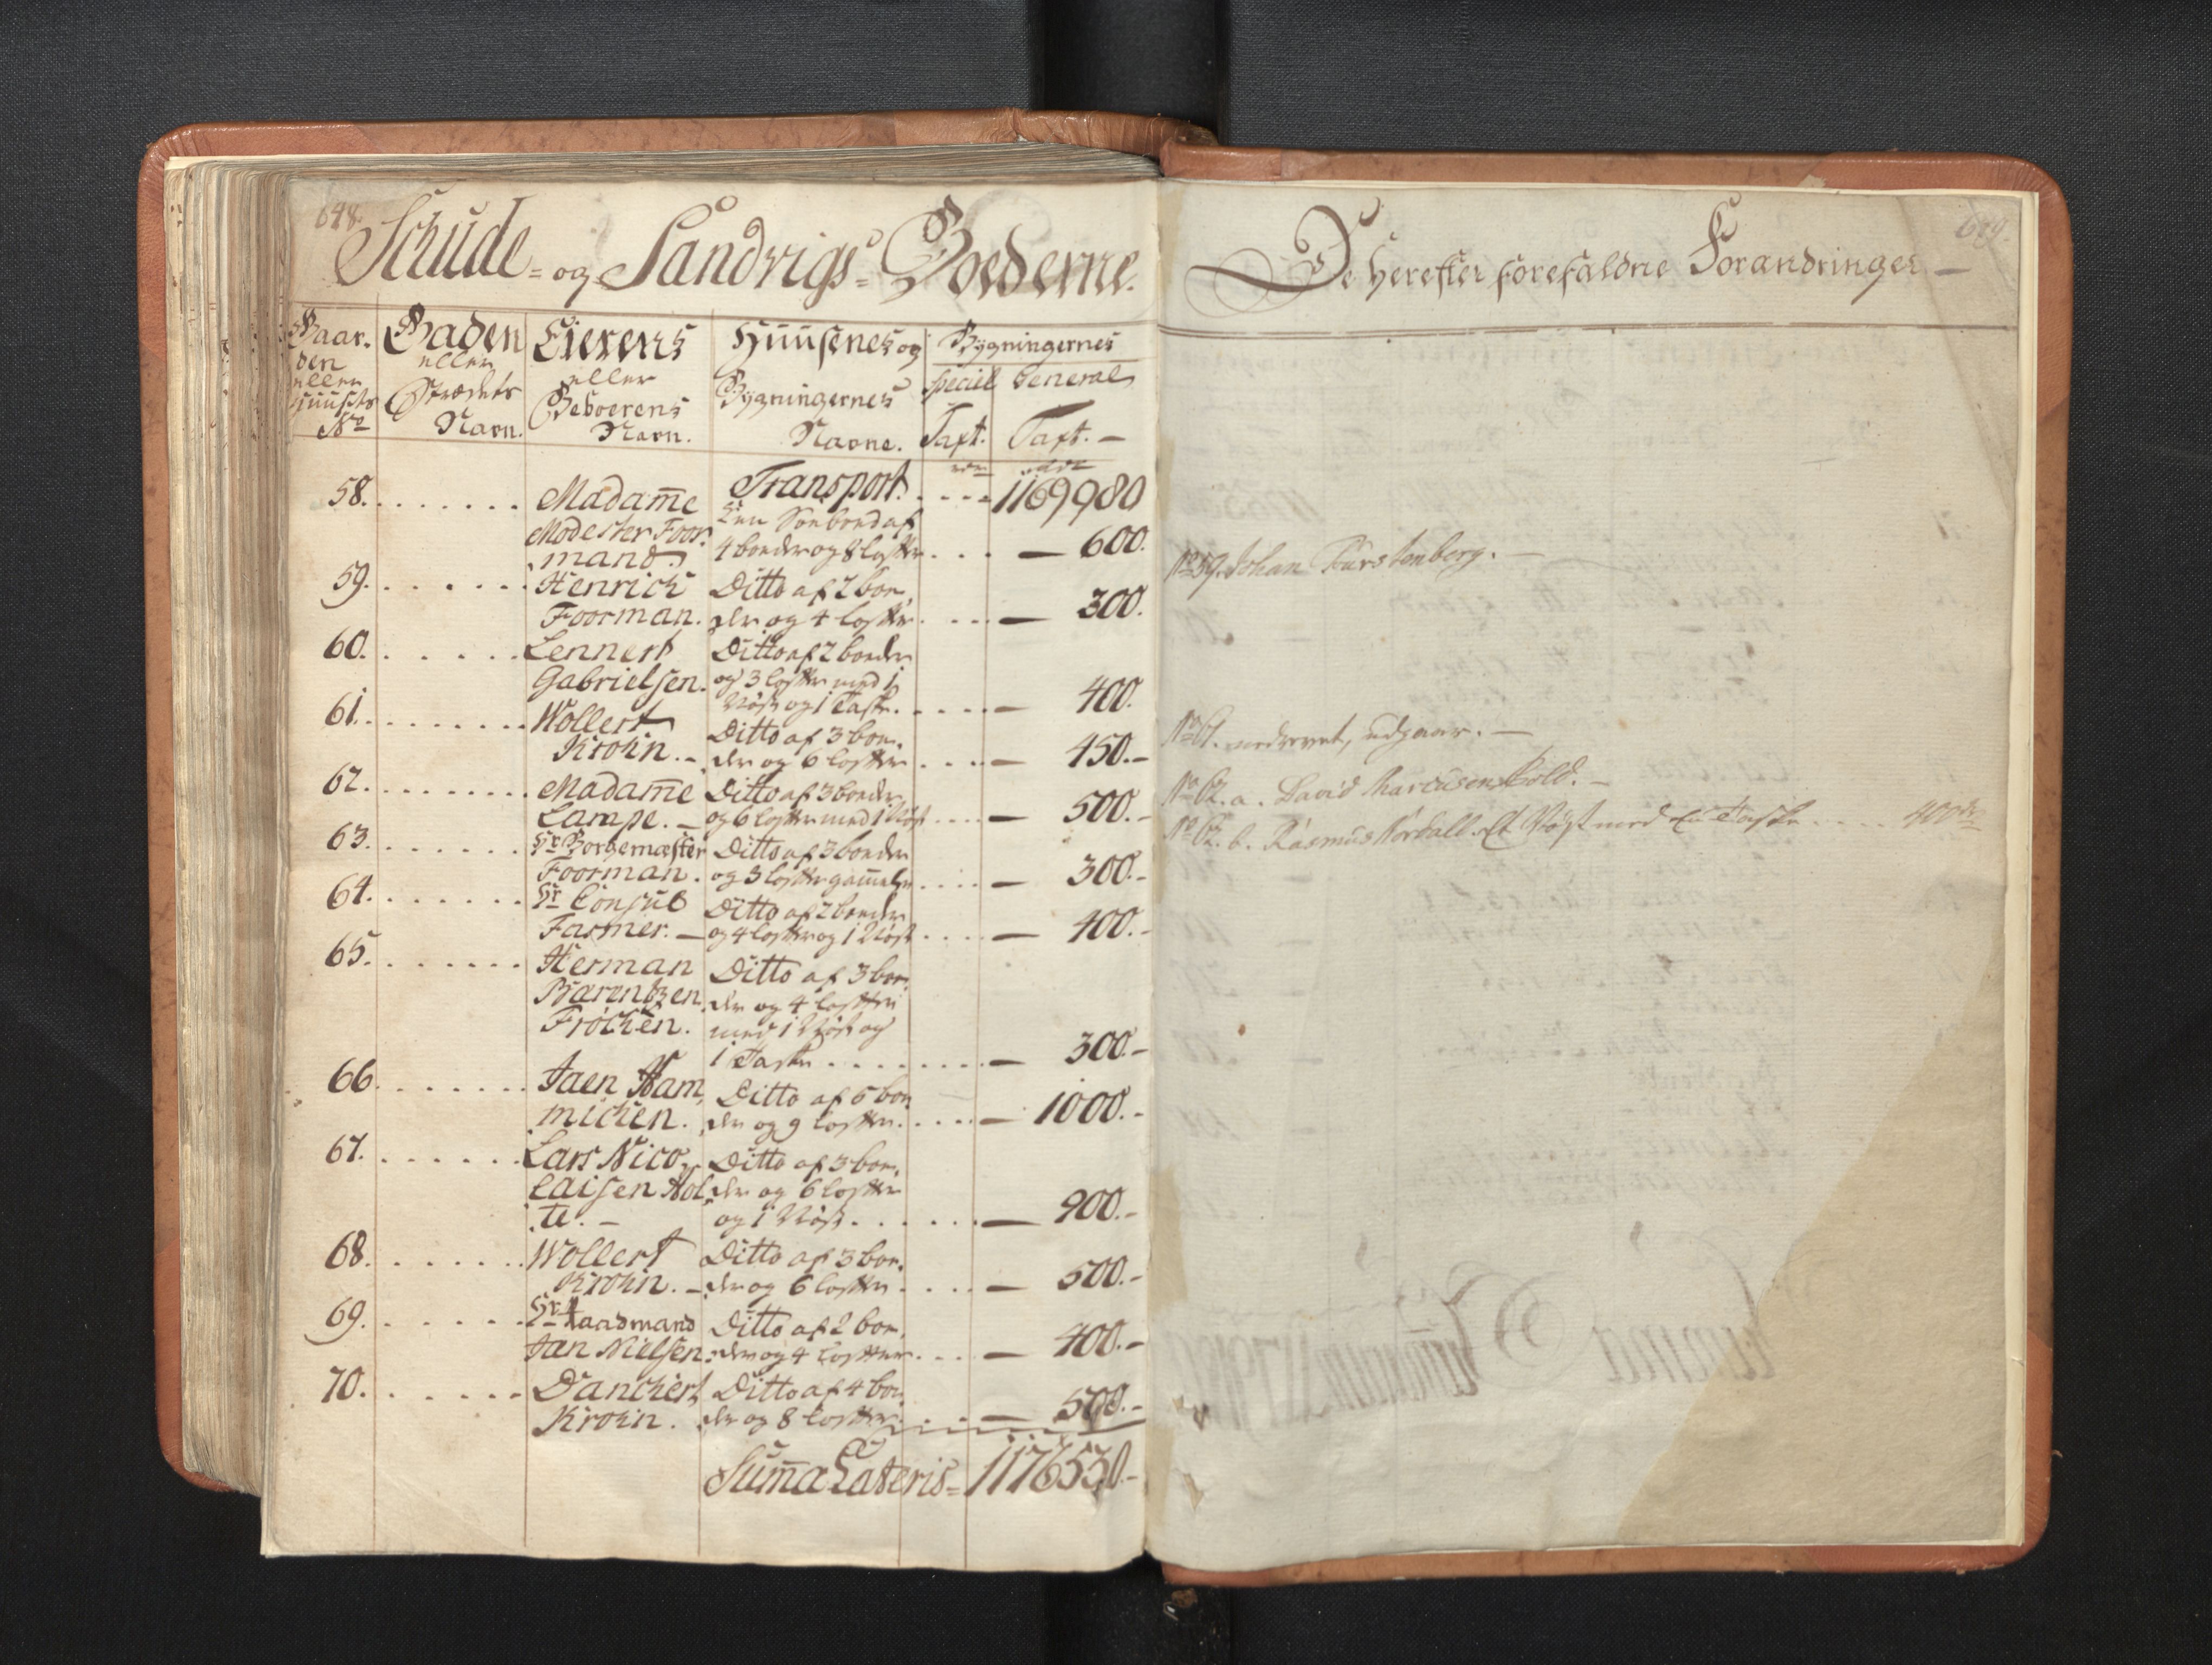 648.
Schude- og Sandvigs-Boederne.
Gaar-
den
eller
Huusets
No
Gaden
eller
Strædets
Navn.
Eierens
eller
Beboerens
Navn.
Huusenes og
Bygningernes
Navne.
Bygningernes
Speciel General
Taxt. Taxt. —
Transport. . . . . 1169980
58. . . . . . . . Madame
Modester Foor-
mand.
Een Søebod af
4 boeder og 8 lofter . . . — 600.
59. . . . . . . Henrich
Foorman.
Ditto af 2 boe-
der og 4 lofter . . . . — 300.
60. . . . . . Lennert
Gabrielsen.
Ditto af 2 boeder
og 3 lofter med 1
Nøst og 1 Taske. . . . . . — 400.
61. . . . . . . . . Wollert
Krohn. —
Ditto af 3 boe-
der og 6 lofter . . . . — 450. —
62. . . . . . . . . Madame
Lampe. —
Ditto af 3 boeder
og 6 lofter med 1 Nøst . . . . — 500. —
63. . . . . . . . Hr Borgemæster
Foorman.
Ditto af 3 boeder
og 3 lofter gammelt . . . . — 300. —
64. . . . . . . . Hr Consul
Farmer. —
Ditto af 2 boeder
og 4 lofter og 1 Nøst . . . . — 400. —
65. . . . . . . . Herman
Bærentzen
Frøchen.
Ditto af 3 boe-
der og 4 lofter
med 1 Nøst og
1 Taske . . . . . . . — 300 —
66. . . . . . . Jaen Ham-
michen.
Ditto af 5 boe-
der og 9 lofter. . . . . — 1000. —
67. . . . . . . Lars Nico-
laisen Hol-
te. —
Ditto af 3 boe-
der og 6 lofter
og 1 Nøst. . . . . . . — 900. —
68. . . . . . . . Wollert
Krohn. —
Ditto af 3 boe-
der og 6 lofter . . . . — 500. —
69. . . . . . . Hr Raadmand
Jan Nielsen.
Ditto af 2 boe-
der og 4 lofter. . . . — 400. —
70. . . . . . . . Danckert
Krohn.
Ditto af 4 boe-
der og 8 lofter. . . . — 500. —
Suma Lateris = 1176530. —
649.
De herefter forefaldne Forandringer —
No 59. Johan Fürstenberg. —
No 61. nedrevet, udgaar. —
No 62. a. David Marcusen Kold. —
No 62. b. Rasmus Nordall. Et Nøst med en Taske . . . . 400 rdr